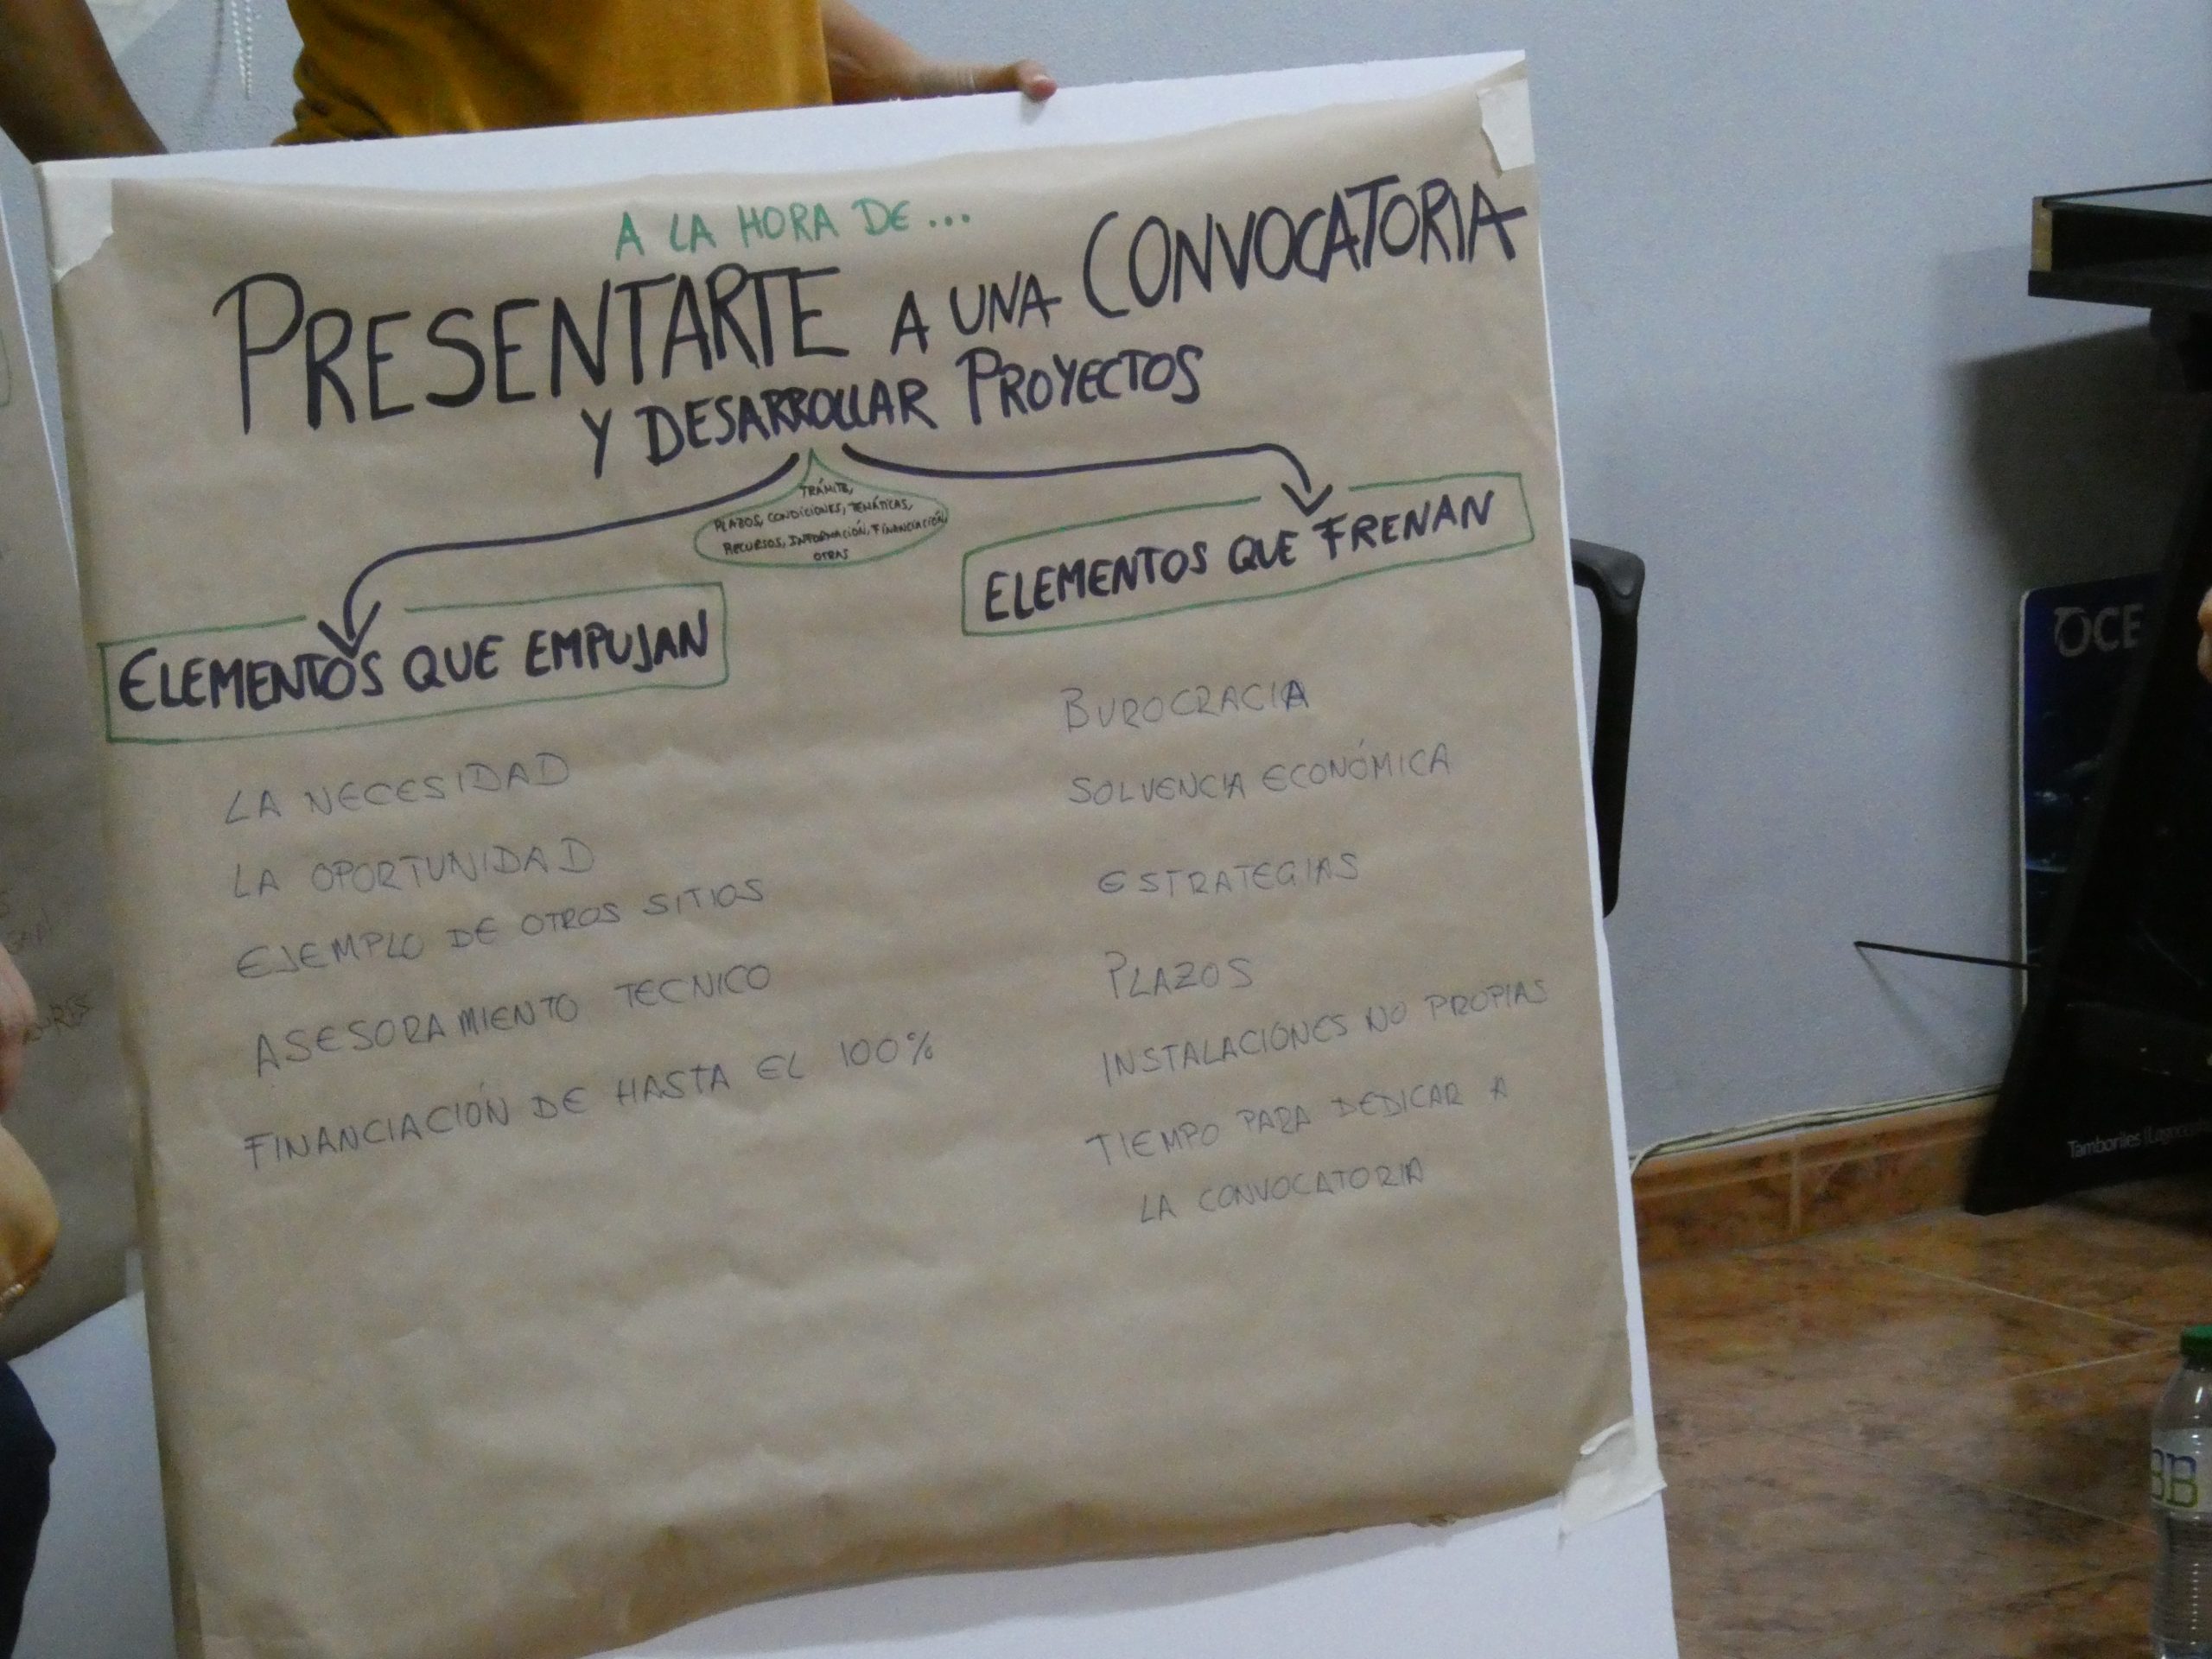 A LA HORA DE...
PRESENTARTE A UNA CONVOCATORIA
Y DESARROLLAR PROYECTOS
TRÁMITE,
PLAZOS, CONDICIONES, TEMÁTICAS,
RECURSOS, INFORMACIÓN, FINANCIACIÓN,
OTRAS
ELEMENTOS QUE EMPUJAN
LA NECESIDAD
LA OPORTUNIDAD
EJEMPLO DE OTROS SITIOS
ASESORAMIENTO TECNICO
FINANCIACIÓN DE HASTA EL 100%
ELEMENTOS QUE FRENAN
BUROCRACIA
SOLVENCIA ECONÓMICA
ESTRATEGIAS
PLAZOS
INSTALACIONES NO PROPIAS
TIEMPO PARA DEDICAR A
LA CONVOCATORIA
OCE
Tamboriles
BB